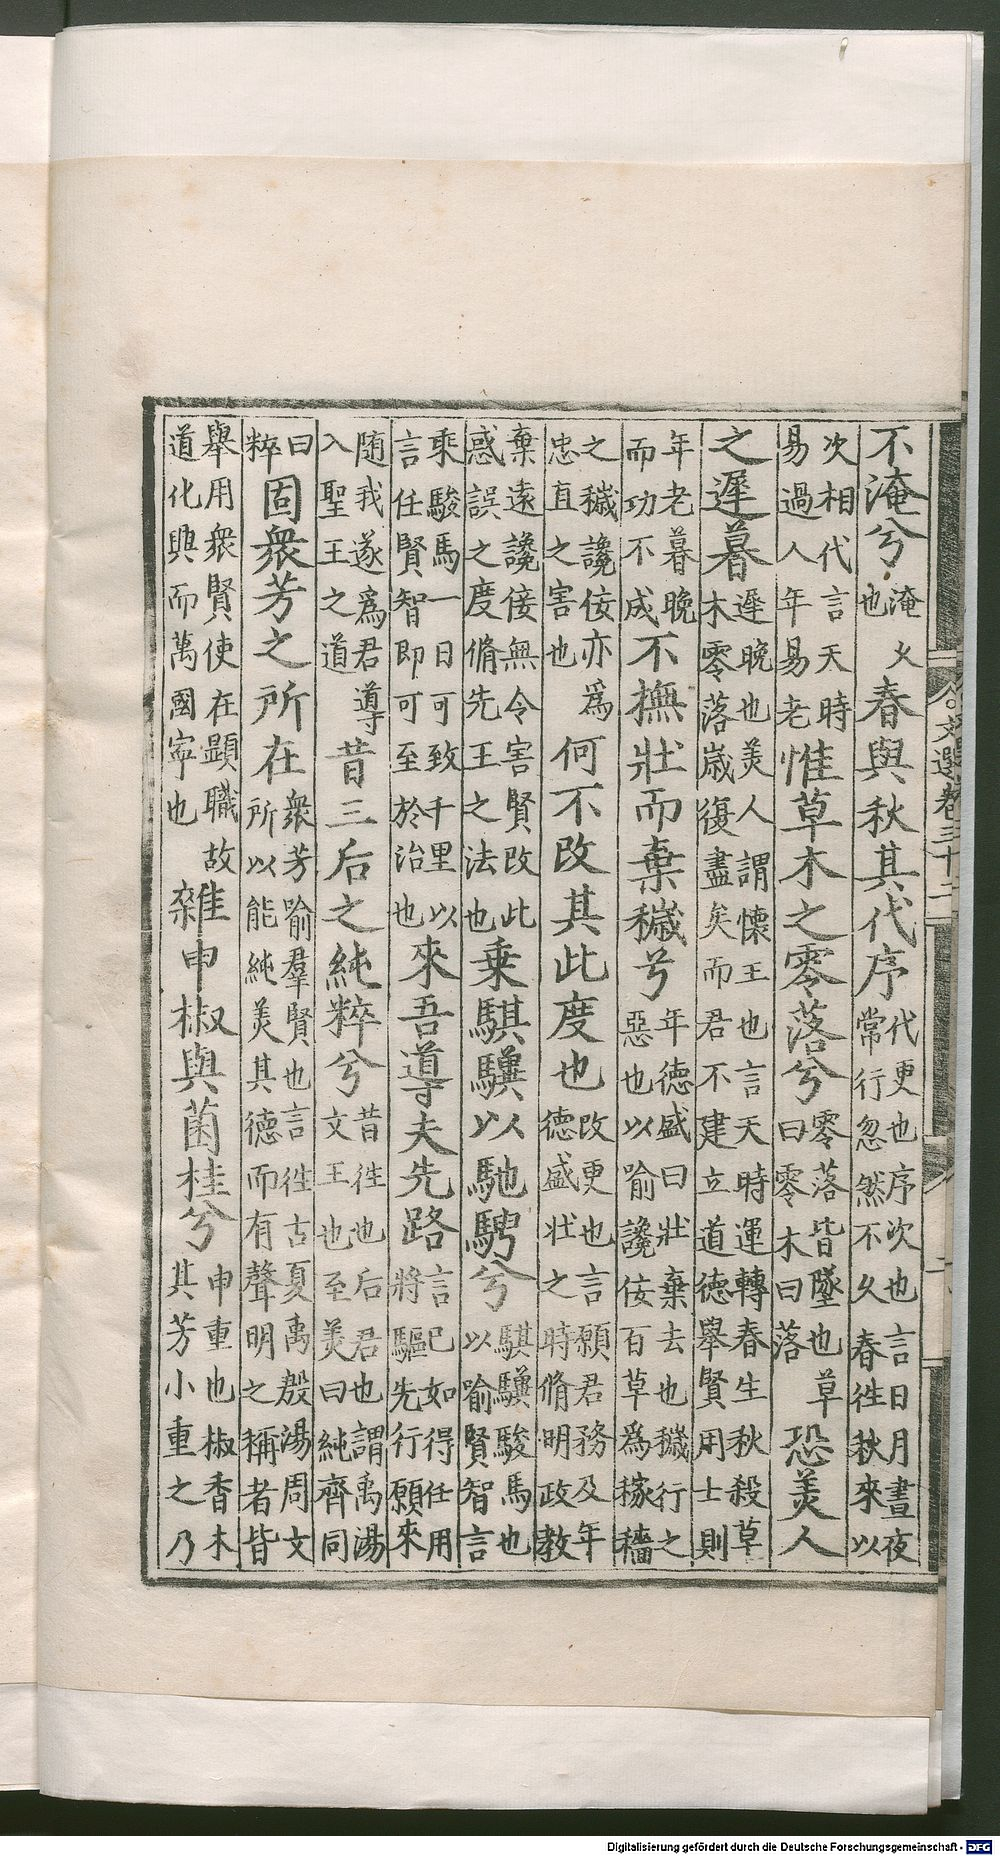 不淹兮淹久也春與秋其代序代更也序次也言日月晝夜常行忽然不久春徃秋來以
次相代言天時易過人年易老惟草木之零落兮零落皆墜也草曰零木曰落恐羙人
之遲暮遲晚也羙人謂懷王也言天時運轉春生秋殺草木零落歲復盡矣而君不建立道德舉賢用士則
年老暮晚而功不成不撫壯而棄穢兮年德盛曰壯棄去也穢行之惡也以喻讒佞百草爲稼穡
之穢讒佞亦爲忠直之害也何不改其此度也改更也言願君務及年德盛壯之時脩明政教
棄遠讒佞無令害賢改此惑誤之度脩先王之法也乗騏驥以馳騁兮騏驥駿馬也以喻賢智言
乘駿馬一日可致千里以言任賢智即可至於治也來吾導夫先路言己如得任用將驅先行願來
随我遂爲君導入聖王之道昔三后之純粹兮昔徃也后君也謂禹湯文王也至羙曰純齊同
曰粹固衆芳之所在衆芳喻羣賢也言徃古夏禹殷湯周文所以能純羙其德而有聲明之稱者皆
舉用衆賢使在顯職故道化興而萬國寧也雜申椒與菌桂兮申重也椒香木其芳小重之乃
文選卷三十二
Digitalisierung gefördert durch die Deutsche Forschungsgemeinschaft - DFG